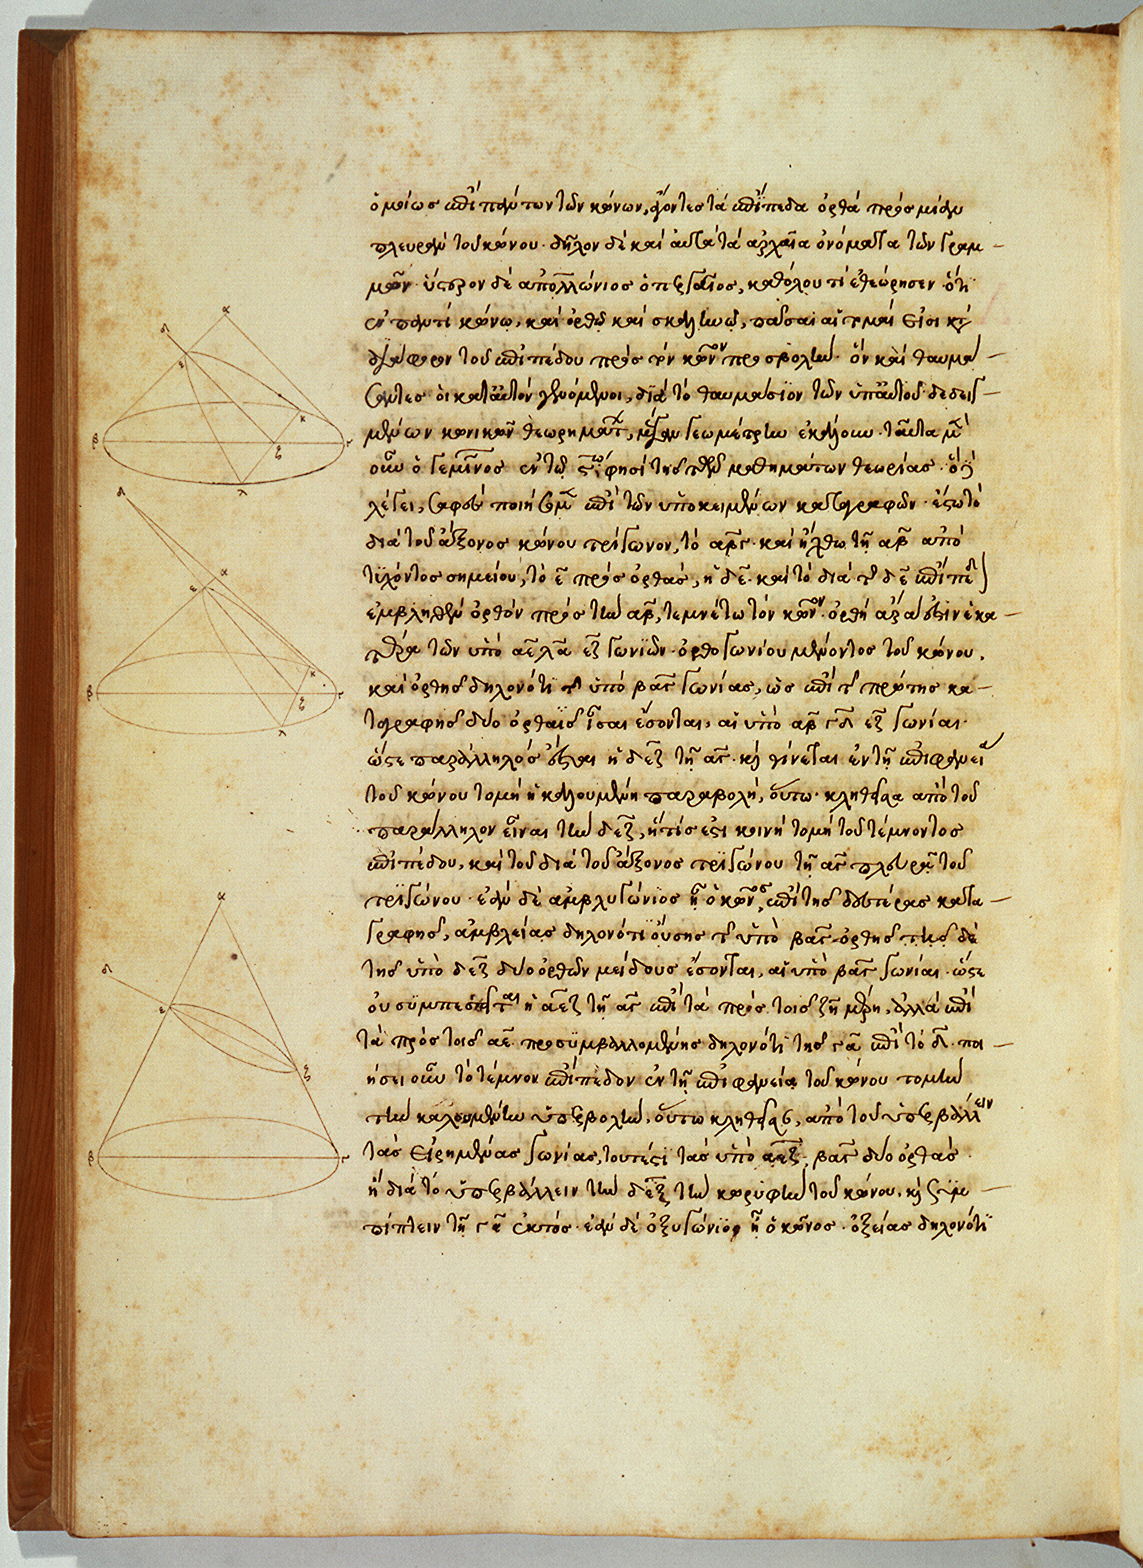 ὁμοίως ἐπὶ πάντων τῶν κώνων, ἄγοντες τὰ ἐπίπεδα ὀρθὰ πρὸς μίαν
πλευρὰν τοῦ κώνου· δῆλον δὲ καὶ αὐτὰ τὰ ἀρχαῖα ὀνόματα τῶν γραμ–
μῶν· ὕστερον δὲ ἀπολλώνιος ὁ περγαῖος, καθόλου τι ἐθεώρησεν· ὅτι
ἐν παντὶ κώνῳ, καὶ ὀρθῷ καὶ σκαληνῷ, πᾶσαι αἱ τομαί εἰσι κατὰ
διάφορον τοῦ ἐπιπέδου πρὸς τὸν κῶνον προσβολήν· ὃν καὶ θαυμά–
σαντες οἱ κατ' αὐτὸν γενόμενοι, διὰ τὸ θαυμάσιον τῶν ὑπ' αὐτοῦ δεδειγ–
μένων κωνικῶν θεωρημάτων, μέγαν γεωμέτρην ἐκάλουν· ταῦτα μὲν
οὖν ὁ γεμῖνος ἐν τῷ ϛῳ φησὶ τῆς τῶν μαθημάτων θεωρίας· ὃ δὲ
λέγει, σαφὲς ποιήσομεν ἐπὶ τῶν ὑποκειμένων καταγραφῶν· ἔστω τὸ
διὰ τοῦ ἄξονος κώνου τρίγωνον, τὸ αβγ· καὶ ἤχθω τῇ αβ ἀπὸ
τυχόντος σημείου, τὸ ε πρὸς ὀρθὰς, ἡ δε· καὶ τὸ διὰ τῆς δε ἐπίπεδον
ἐμβληθὲν ὀρθὸν πρὸς τὴν αβ, τεμνέτω τὸν κῶνον· ὀρθὴ ἄρα ἐστὶν ἑκα–
τέρα τῶν ὑπὸ αε λα εζ γωνιῶν· ὀρθογωνίου μὲν ὄντος τοῦ κώνου,
καὶ ὀρθῆς δηλονότι τῆς ὑπὸ βαγ γωνίας, ὡς ἐπὶ τῆς πρώτης κα–
ταγραφῆς δύο ὀρθαῖς ἴσαι ἔσονται, αἱ ὑπὸ αβ γδ εζ γωνίαι·
ὥστε παράλληλος ἔσται ἡ δεζ τῇ αγ· καὶ γίνεται ἐν τῇ ἐπιφανείᾳ
τοῦ κώνου τομὴ ἡ καλουμένη παραβολὴ, οὕτω κληθεῖσα ἀπὸ τοῦ
παράλληλον εἶναι τὴν δεζ, ἥτις ἐστὶ κοινὴ τομὴ τοῦ τέμνοντος
ἐπιπέδου, καὶ τοῦ διὰ τοῦ ἄξονος τριγώνου τῇ αγ πλευρᾷ τοῦ
τριγώνου· ἐὰν δὲ ἀμβλυγώνιος ᾖ ὁ κῶνος, ἐπὶ τῆς δευτέρας κατα–
γραφῆς, ἀμβλείας δηλονότι οὔσης τῆς ὑπὸ βαγ ὀρθῆς τῆς δὲ
τῆς ὑπὸ δεζ δύο ὀρθῶν μείζους ἔσονται, αἱ ὑπὸ βαγ γωνίαι· ὥστε
οὐ συμπεσεῖται ἡ αεζ τῇ αγ ἐπὶ τὰ πρὸς τοῖς ζη μέρη, ἀλλὰ ἐπὶ
τὰ πρὸς τοῖς αε προσυμβαλλομένης δηλονότι τῆς γα ἐπὶ τὸ δ. ποι–
ήσει οὖν τὸ τέμνον ἐπίπεδον ἐν τῇ ἐπιφανείᾳ τοῦ κώνου τομὴν
τὴν καλουμένην ὑπερβολὴν, οὕτω κληθεῖσαν, ἀπὸ τοῦ ὑπερβάλλειν
τὰς εἰρημένας γωνίας, τουτέστι τὰς ὑπὸ αεζ, βαγ δύο ὀρθὰς·
ἢ διὰ τὸ ὑπερβάλλειν τὴν δεζ τὴν κορυφὴν τοῦ κώνου, καὶ συμ–
πίπτειν τῇ γα ἐκτός· ἐὰν δὲ ὀξυγώνιος ᾖ ὁ κῶνος· ὀξείας δηλονότι
α
δ
ε
κ
β
ζ
γ
λ
δ
α
ε
κ
β
ζ
γ
λ
α
δ
ε
ζ
β
γ